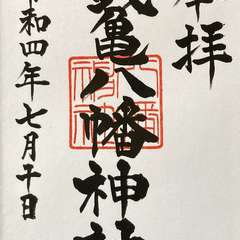 奉拝
亀八幡神社
令和四年七月十日